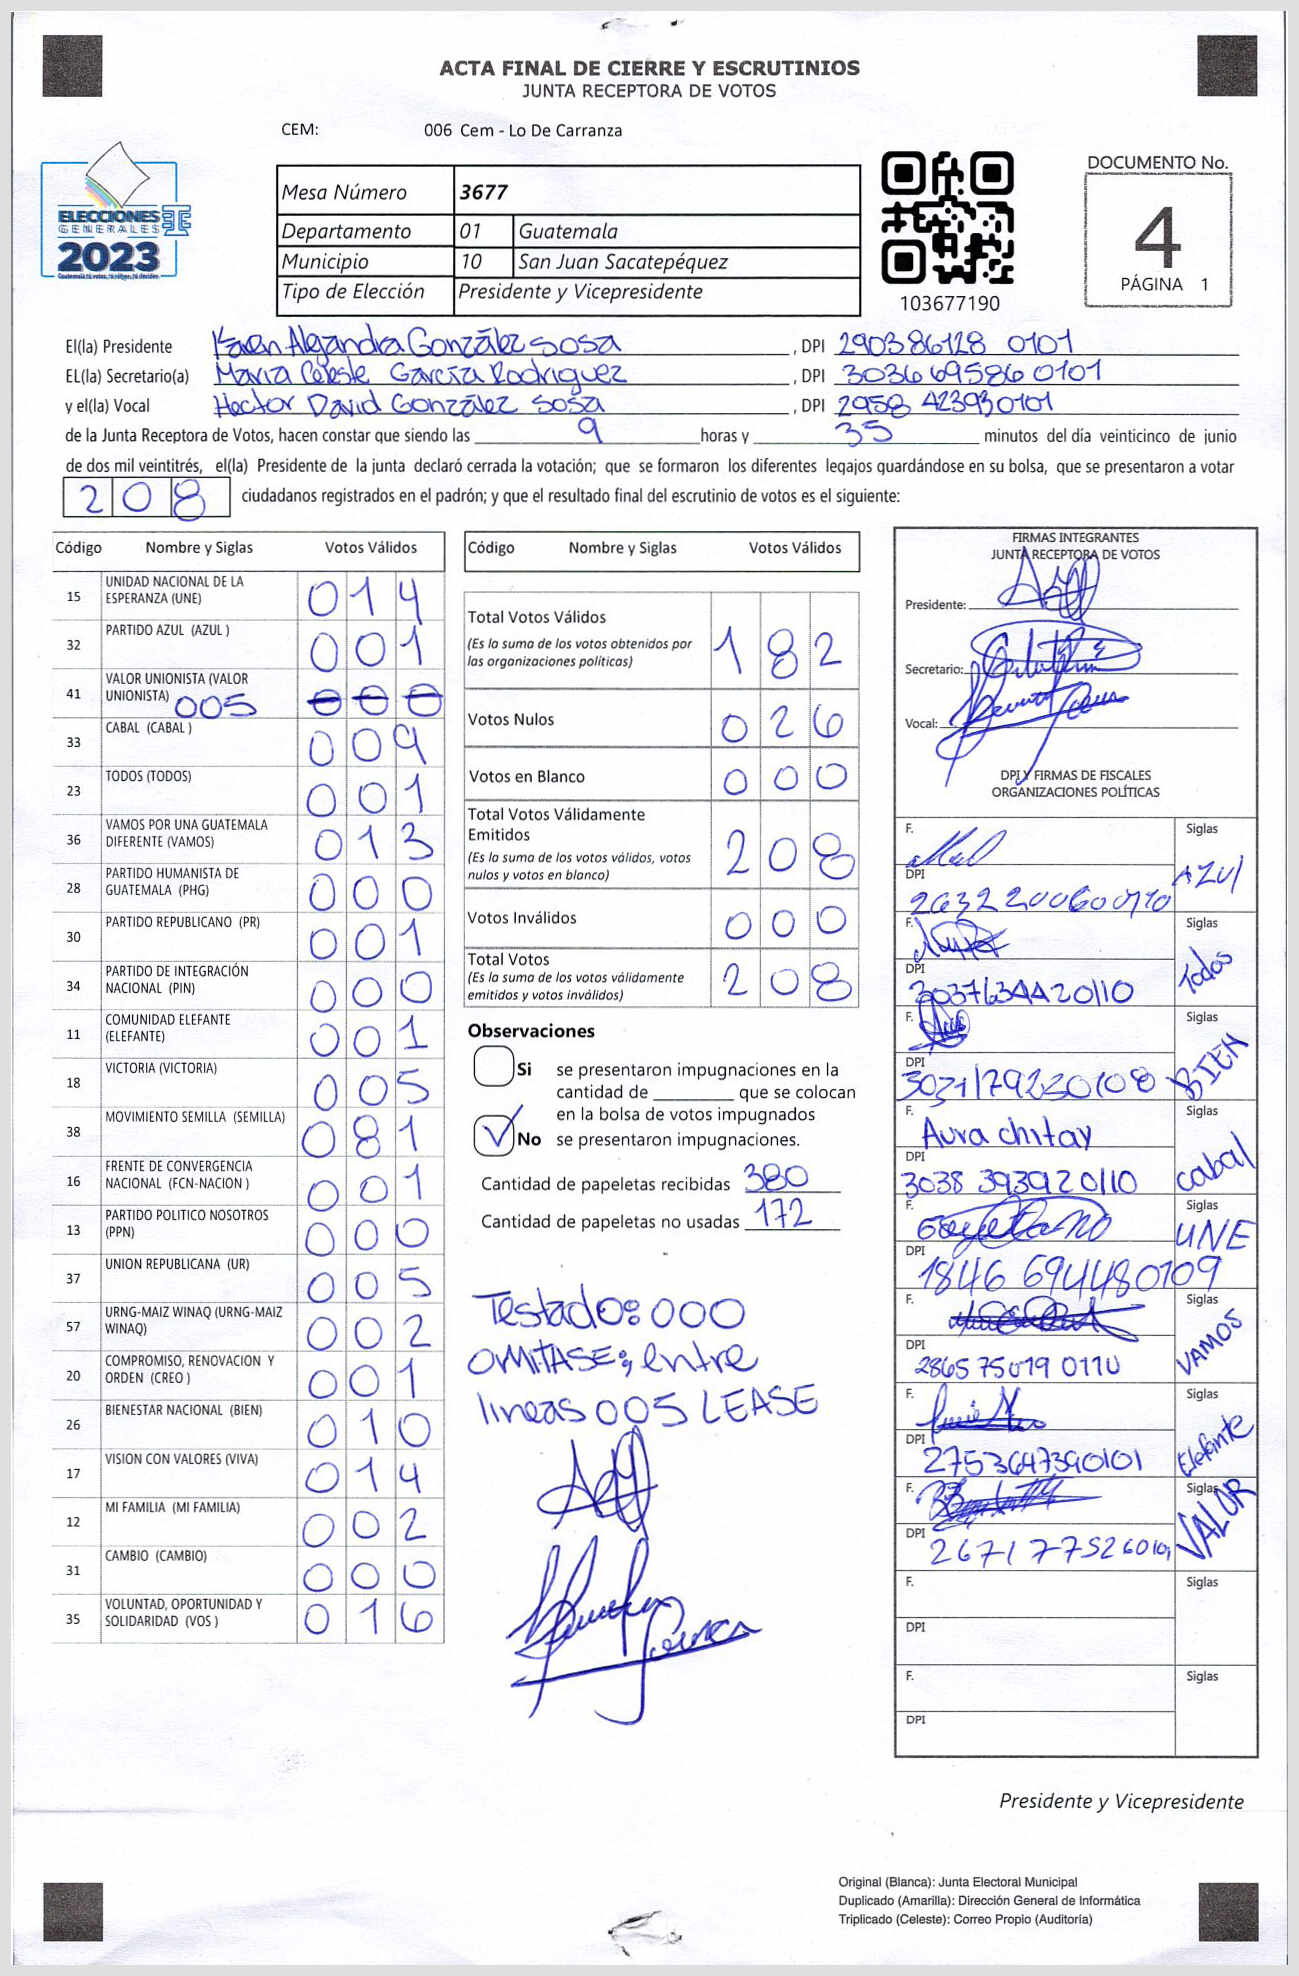 ACTA FINAL DE CIERRE Y ESCRUTINIOS
JUNTA RECEPTORA DE VOTOS
CEM: 006 Cem - Lo De Carranza
ELECCIONES
GENERALES
2023
Mesa Número 3677
Departamento 01 Guatemala
Municipio 10 San Juan Sacatepéquez
Tipo de Elección Presidente y Vicepresidente
103677190
DOCUMENTO No.
4
PÁGINA 1
El(la) Presidente Karen Alejandra González Sosa , DPI 290386128 0101
EL(la) Secretario(a) Maria Celeste García Rodriguez , DPI 3036695860101
y el(la) Vocal Hector David González Sosa , DPI 2958 423930101
de la Junta Receptora de Votos, hacen constar que siendo las 9 horas y 35 minutos del día veinticinco de junio
de dos mil veintitrés, el(la) Presidente de la junta declaró cerrada la votación; que se formaron los diferentes legajos guardándose en su bolsa, que se presentaron a votar
208 ciudadanos registrados en el padrón; y que el resultado final del escrutinio de votos es el siguiente:
Código Nombre y Siglas Votos Válidos
15 UNIDAD NACIONAL DE LA ESPERANZA (UNE) 014
32 PARTIDO AZUL (AZUL ) 001
41 VALOR UNIONISTA (VALOR UNIONISTA) 005 000
33 CABAL (CABAL ) 009
23 TODOS (TODOS) 001
36 VAMOS POR UNA GUATEMALA DIFERENTE (VAMOS) 013
28 PARTIDO HUMANISTA DE GUATEMALA (PHG) 000
30 PARTIDO REPUBLICANO (PR) 001
34 PARTIDO DE INTEGRACIÓN NACIONAL (PIN) 000
11 COMUNIDAD ELEFANTE (ELEFANTE) 001
18 VICTORIA (VICTORIA) 005
38 MOVIMIENTO SEMILLA (SEMILLA) 081
16 FRENTE DE CONVERGENCIA NACIONAL (FCN-NACION ) 001
13 PARTIDO POLITICO NOSOTROS (PPN) 000
37 UNION REPUBLICANA (UR) 005
57 URNG-MAIZ WINAQ (URNG-MAIZ WINAQ) 002
20 COMPROMISO, RENOVACION Y ORDEN (CREO ) 001
26 BIENESTAR NACIONAL (BIEN) 010
17 VISION CON VALORES (VIVA) 014
12 MI FAMILIA (MI FAMILIA) 002
31 CAMBIO (CAMBIO) 000
35 VOLUNTAD, OPORTUNIDAD Y SOLIDARIDAD (VOS ) 016
Código Nombre y Siglas Votos Válidos
Total Votos Válidos 182
(Es la suma de los votos obtenidos por
las organizaciones políticas)
Votos Nulos 026
Votos en Blanco 000
Total Votos Válidamente
Emitidos 208
(Es la suma de los votos válidos, votos
nulos y votos en blanco)
Votos Inválidos 000
Total Votos 208
(Es la suma de los votos válidamente
emitidos y votos inválidos)
Observaciones
Si se presentaron impugnaciones en la
cantidad de ________ que se colocan
en la bolsa de votos impugnados
No se presentaron impugnaciones.
Cantidad de papeletas recibidas 380
Cantidad de papeletas no usadas 172
Testado: 000
OMITASE; entre
lineas 005 LEASE
FIRMAS INTEGRANTES
JUNTA RECEPTORA DE VOTOS
Presidente:
Secretario:
Vocal:
DPI Y FIRMAS DE FISCALES
ORGANIZACIONES POLÍTICAS
F. Siglas AZUl
DPI
F. Siglas Todos
DPI 3037634420110
F. Siglas BIEN
DPI 3031179220108
F. Aura chitay Siglas cabal
DPI 3038 393920110
F. Siglas UNE
DPI 1846 694480109
F. Siglas VAMOS
DPI 2865 75019 0110
F. Siglas Elefante
DPI 2753647390101
F. Siglas VALOR
DPI 2671 77526 0101
F. Siglas
DPI
F. Siglas
DPI
Presidente y Vicepresidente
Original (Blanca): Junta Electoral Municipal
Duplicado (Amarilla): Dirección General de Informática
Triplicado (Celeste): Correo Propio (Auditoría)